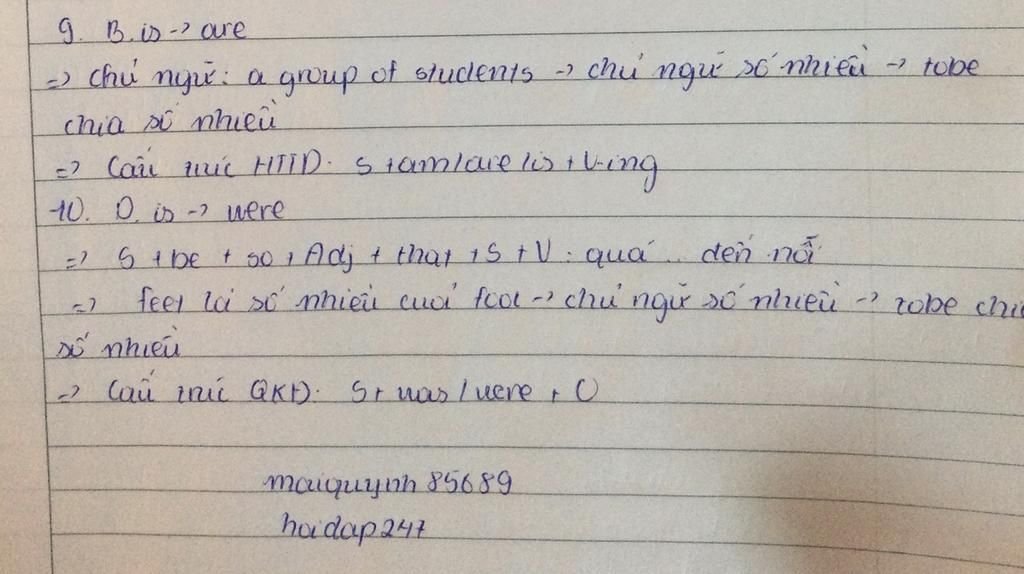 9. B. is -> are
=> chủ ngữ: a group of students -> chủ ngữ số nhiều -> tobe
chia số nhiều
=> Cấu trúc HTTD: S + am/are/is + V-ing
10. D. is -> were
=> S + be + so + Adj + that + S + V: quá... đến nỗi
=> feet là số nhiều của foot -> chủ ngữ số nhiều -> tobe chia
số nhiều
-> Cấu trúc QKĐ: S + was/were + O
maiquynh85689
hoidap247